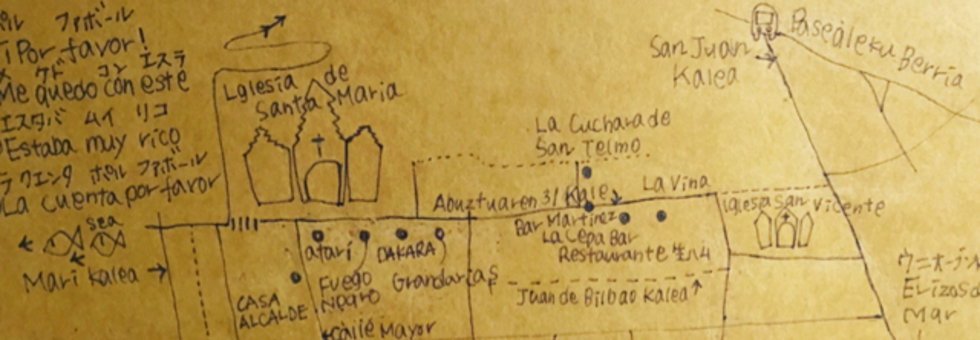 ポル ファボール
¡Por favor!
ケド コン エステ
Me quedo con este
エスタバ ムイ リコ
Estaba muy rico
ラ クエンタ ポル ファボール
La cuenta por favor
sea
Mari Kalea →
Iglesia de
Santa Maria
San Juan
Kalea
Pasealeku Berria
La Cuchara de
San Telmo
Abuztuaren 31 Kale
La Viña
Bar Martinez
La Cepa Bar
Restaurante
Iglesia San Vicente
atari
DAKARA
Fuego
Negro
Grandarias
CASA
ALCALDE
Calle Mayor
Juan de Bilbao Kalea↑
Mar